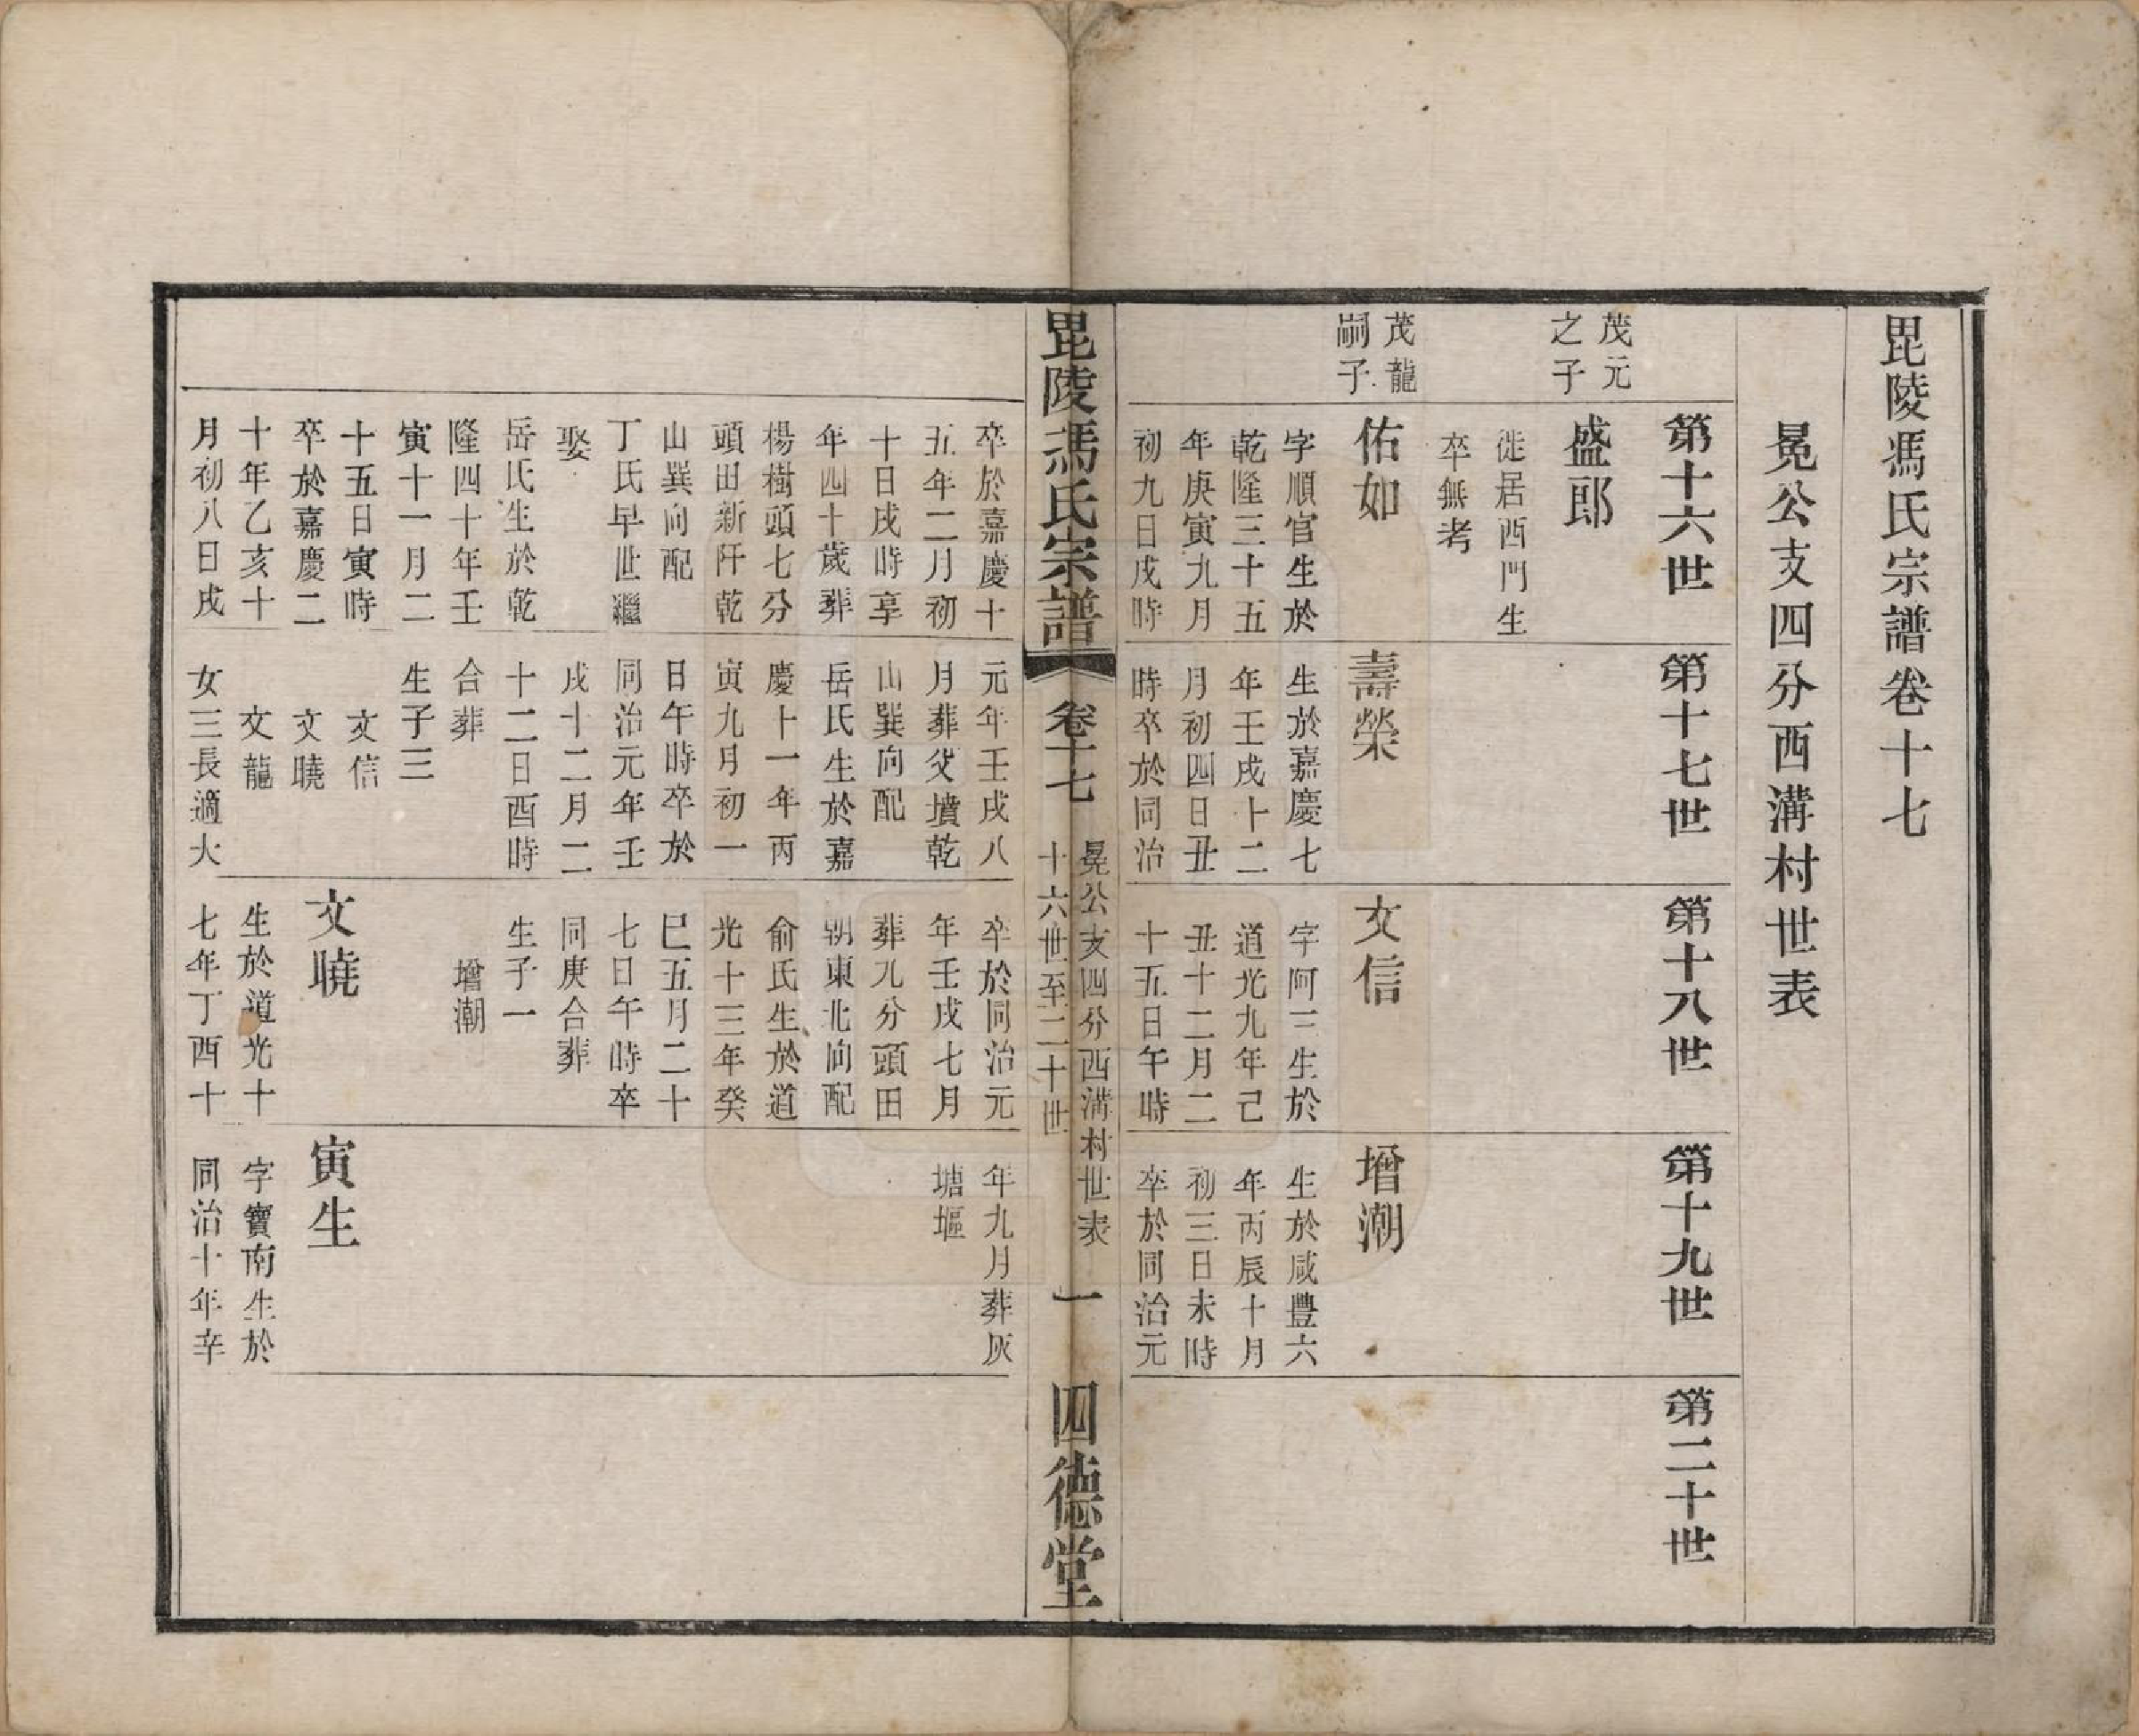 毘陵馮氏宗譜卷十七
冕公支四分西溝村世表
第十六世
第十七世
第十八世
第十九世
第二十世
茂元
之子
盛郎
徙居西門生
卒無考
茂龍
嗣子
佑如
字順官生於
乾隆三十五
年庚寅九月
初九日戌時
壽榮
生於嘉慶七
年壬戌十二
月初四日丑
時卒於同治
文信
字阿三生於
道光九年己
丑十二月二
十五日午時
增潮
生於咸豐六
年丙辰十月
初三日未時
卒於同治元
毘陵馮氏宗譜
卷十七
冕公支四分西溝村世表
十六世至二十世
一
四德堂
卒於嘉慶十
五年二月初
十日戌時享
年四十歲葬
楊樹頭七分
頭田新阡乾
山巽向配
丁氏早世繼
娶
岳氏生於乾
隆四十年壬
寅十一月二
十五日寅時
卒於嘉慶二
十年乙亥十
月初八日戌
元年壬戌八
月葬父墳乾
山巽向配
岳氏生於嘉
慶十一年丙
寅九月初一
日午時卒於
同治元年壬
戌十二月二
十二日酉時
合葬
生子三
文信
文曉
文龍
女三長適大
卒於同治元
年壬戌七月
葬九分頭田
朝東北向配
俞氏生於道
光十三年癸
巳五月二十
七日午時卒
同庚合葬
生子一
增潮
文曉
生於道光十
七年丁酉十
年九月葬灰
塘堰
寅生
字寶南生於
同治十年辛